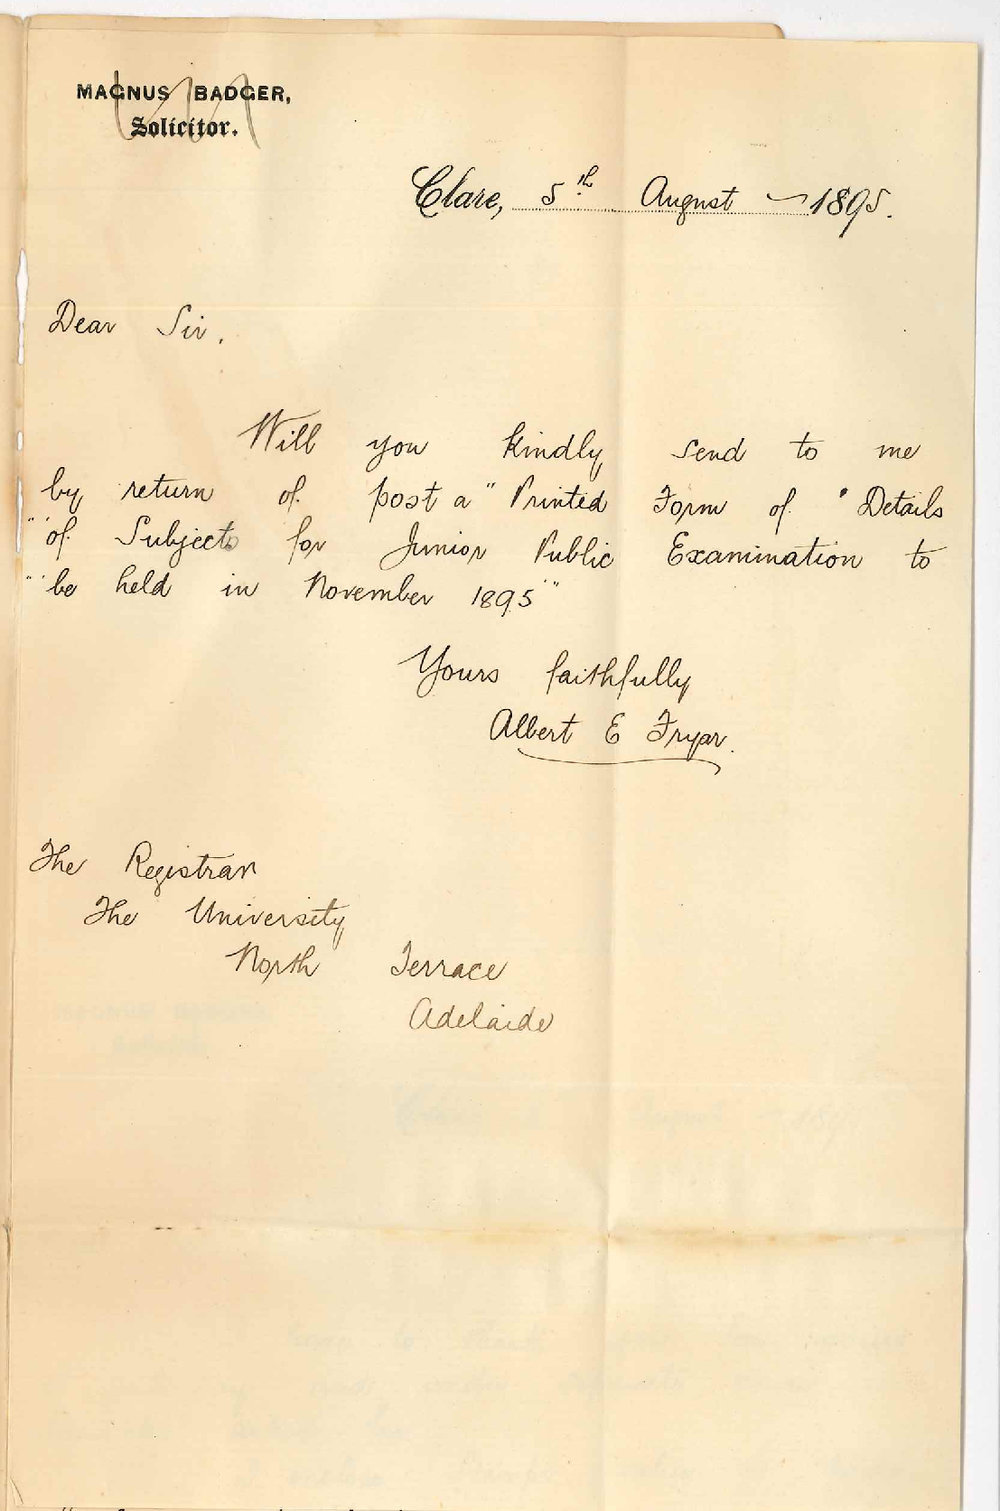 MAGNUS BADGER,
Solicitor.
Clare, 5th August 1895.
Dear Sir,
Will you kindly send to me
by return of post a "Printed Form of "Details
"" of Subjects for Junior Public Examination to
"" be held in November 1895""
Yours faithfully
Albert E Fryar.
The Registrar
The University
North Terrace
Adelaide